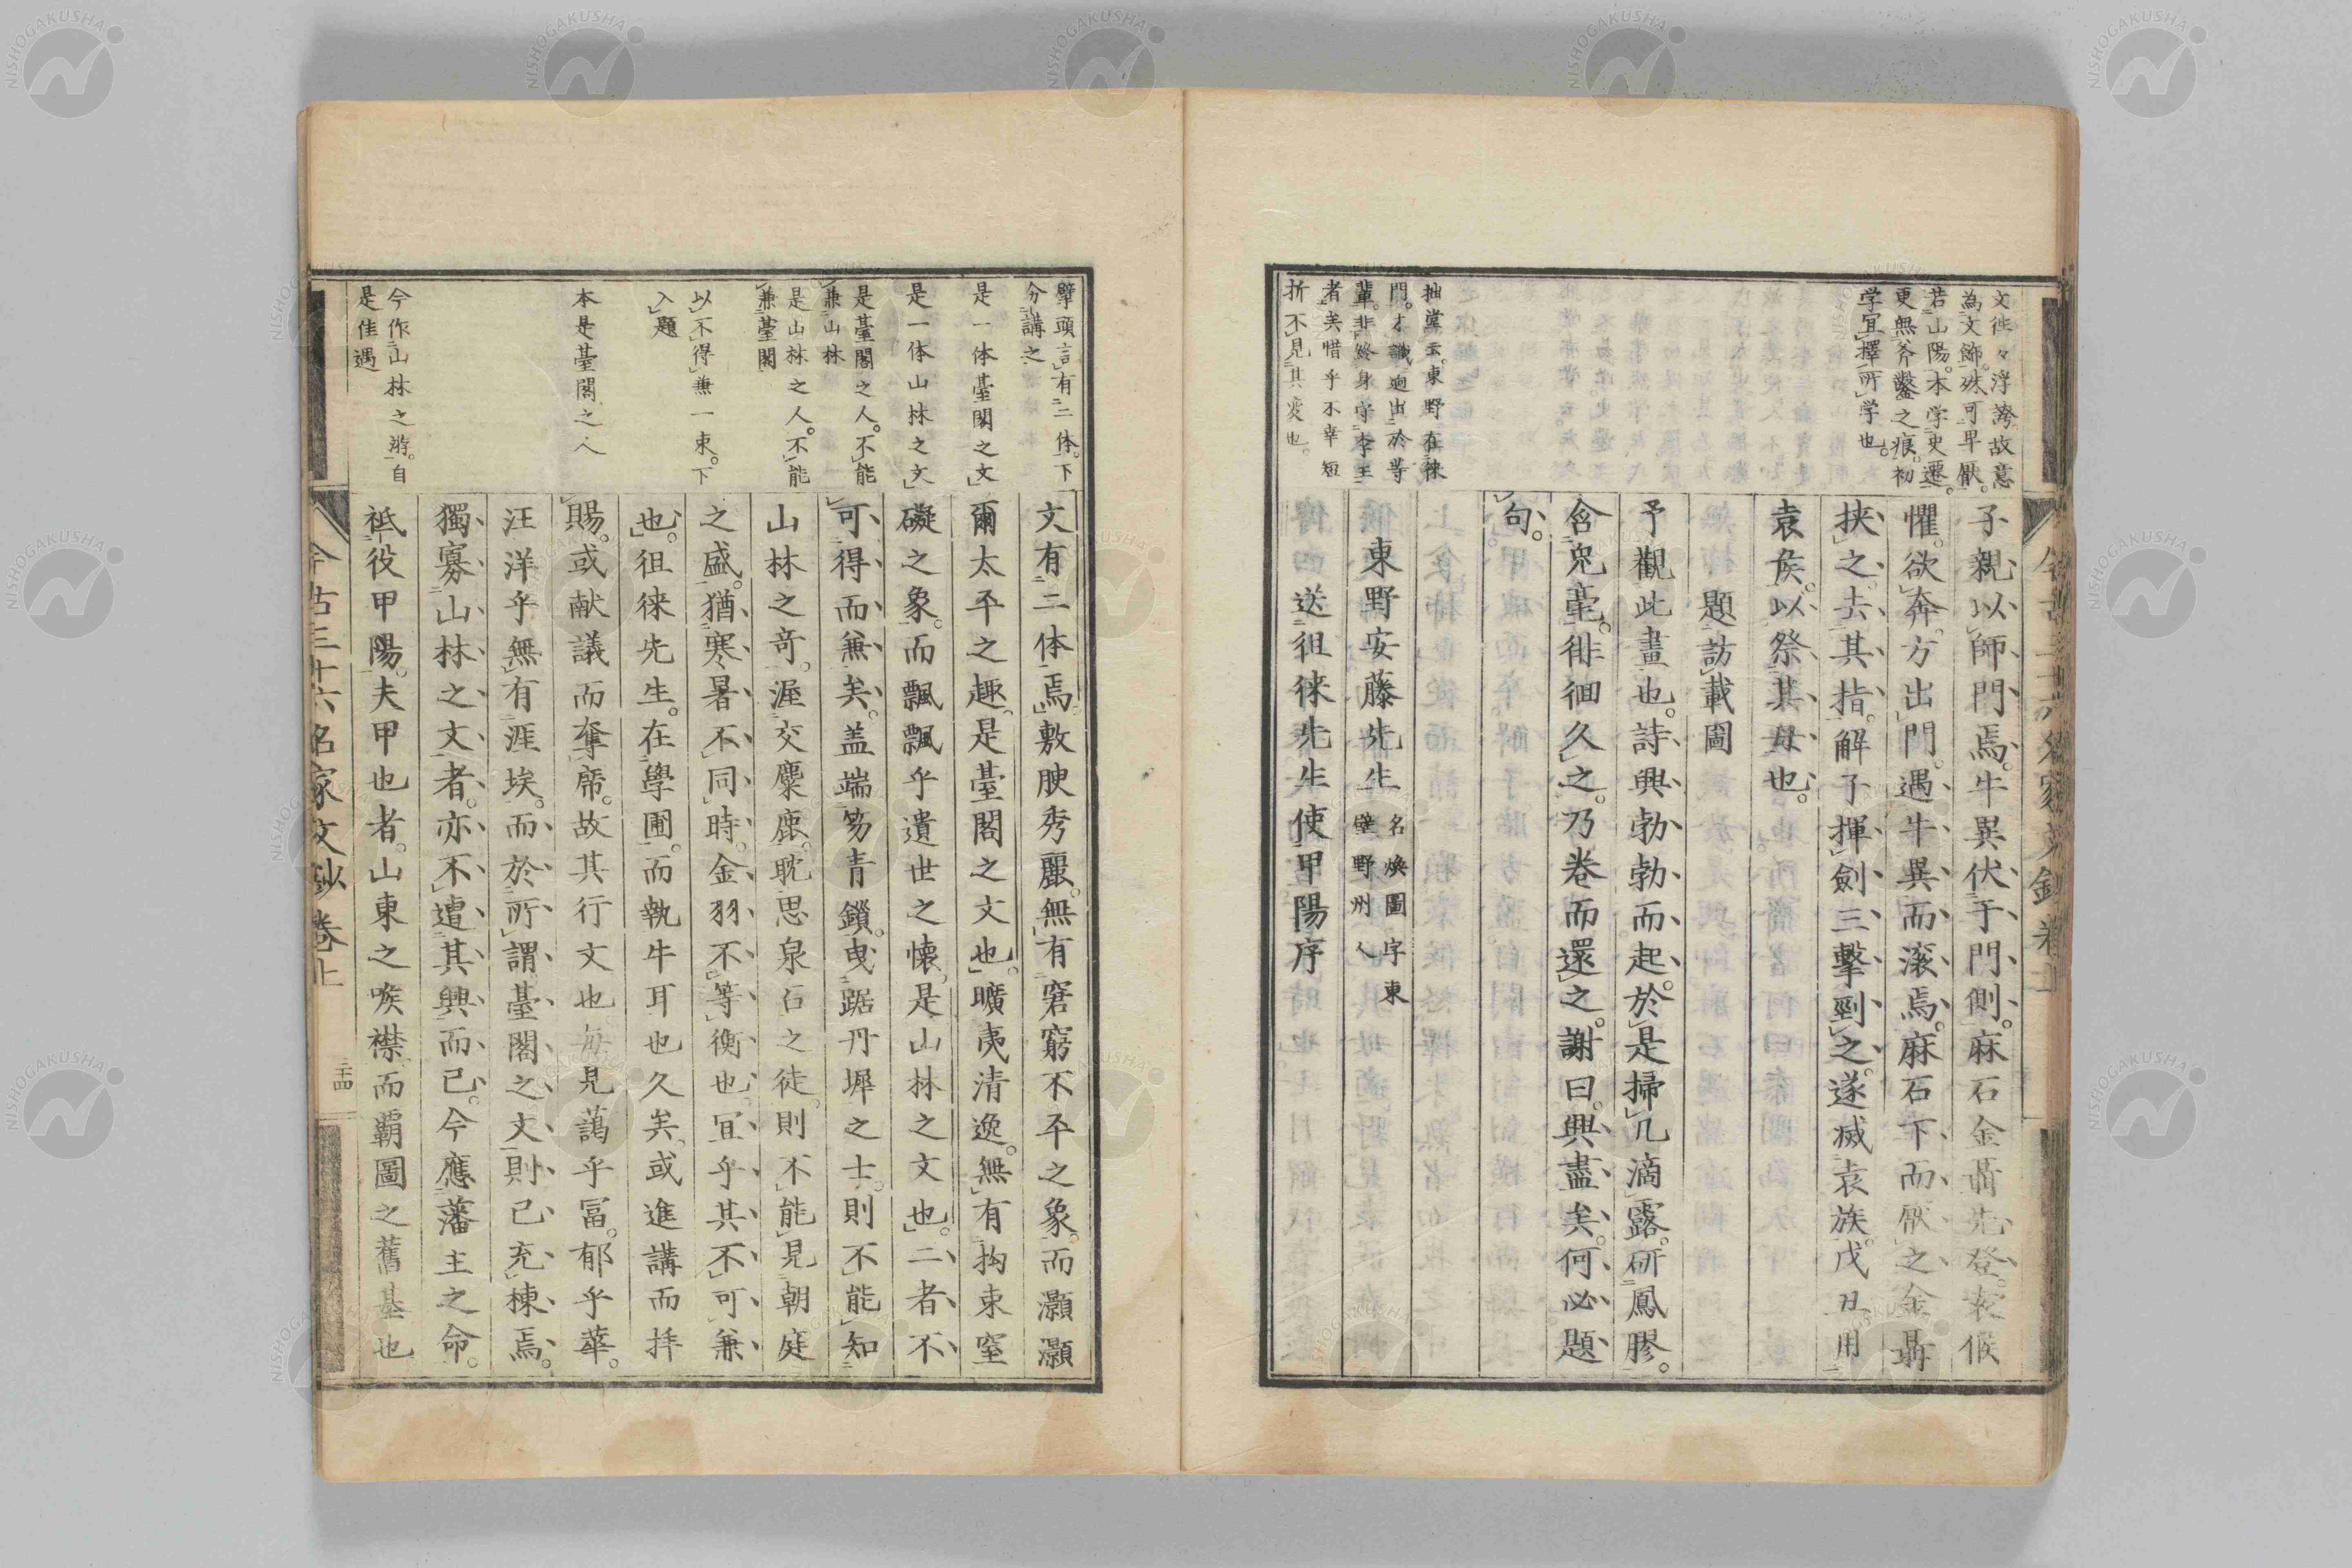 文往々浮誇故意
為文飾。殊可早厭。
若山陽。本学史遷。
更無斧鑿之痕。初
学宜擇所学也。
子親以師門焉。牛異伏于門側。麻石金聶先登。袁候
懼。欲奔。方出門。遇牛異而滾焉。麻石下而厭之金聶
挟之。去其指。解子揮劍三擊剄之。遂滅袁族。戊丑用
袁矦。以祭其母也。
題訪戴圖
予觀此畫也。詩興勃勃而起。於是掃几滴露。研鳳膠。
含兔毫。徘徊久之。乃卷而還之。謝曰。興盡矣。何必題
句。
抽堂云。東野在徠
門。才識迥出於等
輩。非終身守李王
者矣惜乎不幸短
折不見其変也。
東野安藤先生 名煥圖字東
壁野州人
送徂徠先生使甲陽序
今古三十六名家文鈔卷上
擘頭言有二体。下
分講之
是一体臺閣之文
是一体山林之文
是臺閣之人。不能
兼山林
是山林之人。不能
兼臺閣
以不得兼一束。下
入題
本是臺閣之人
今作山林之游。自
是佳遇
文有二体焉敷腴秀麗。無有窘窮不平之象。而灝灝
爾太平之趣。是臺閣之文也。曠夷清逸。無有拘束窒
礙之象。而飄飄乎遺世之懷。是山林之文也。二者不
可得而兼矣。盖端笏青鎖。曳踞丹墀之士。則不能知
山林之奇。渥交麋鹿。耽思泉石之徒。則不能見朝庭
之盛。猶寒暑不同時。金羽不等衡也。宜乎其不可兼
也。徂徠先生。在學圃。而執牛耳也久矣。或進講而拜
賜。或献議而奪席。故其行文也每見藹乎冨。郁乎華。
汪洋乎無有涯埃。而於所謂臺閣之文則已充棟焉。
獨寡山林之文者。亦不遭其興而已。今應藩主之命。
祗役甲陽。夫甲也者。山東之喉襟而覇圖之舊基也
今古三十六名家文鈔卷上
三十四